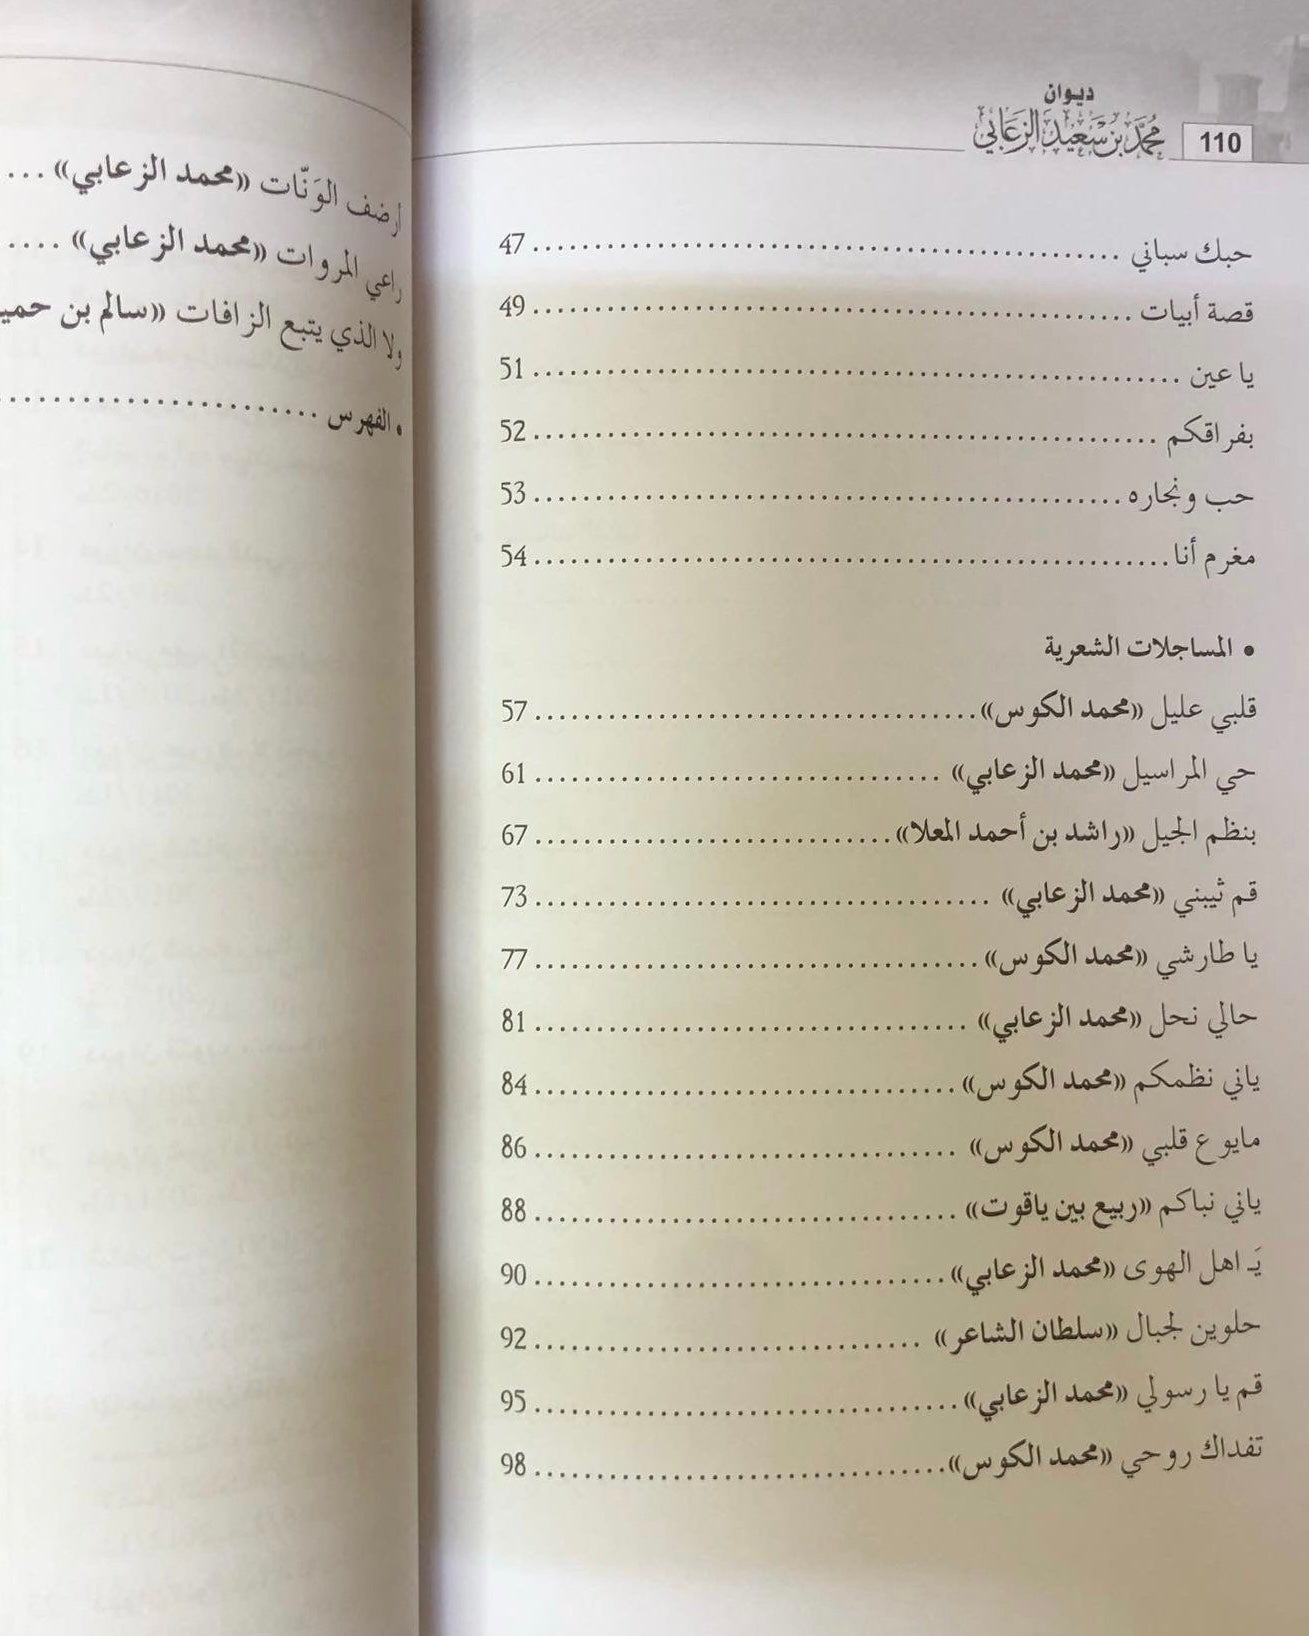 ديوان
محمد بن سعيد الزعابي
110
حبك سباني ........................................ 47
قصة أبيات ........................................ 49
يا عين ........................................ 51
بفراقكم ........................................ 52
حب ونجاره ........................................ 53
مغرم أنا ........................................ 54
• المساجلات الشعرية
قلبي عليل «محمد الكوس» ............................ 57
حي المراسيل «محمد الزعابي» ............................ 61
بنظم الجيل «راشد بن أحمد المعلا» ............................ 67
قم ثيبني «محمد الزعابي» ............................ 73
يا طارشي «محمد الكوس» ............................ 77
حالي نحل «محمد الزعابي» ............................ 81
ياني نظمكم «محمد الكوس» ............................ 84
مايوع قلبي «محمد الكوس» ............................ 86
ياني نباكم «ربيع بين ياقوت» ............................ 88
يَـ اهل الهوى «محمد الزعابي» ............................ 90
حلوين لجبال «سلطان الشاعر» ............................ 92
قم يا رسولي «محمد الزعابي» ............................ 95
تفداك روحي «محمد الكوس» ............................ 98
أرضف الوَنّات «محمد الزعابي» ...
راعي المروات «محمد الزعابي» ....
ولا الذي يتبع الزافات «سالم بن
• الفهرس ........................